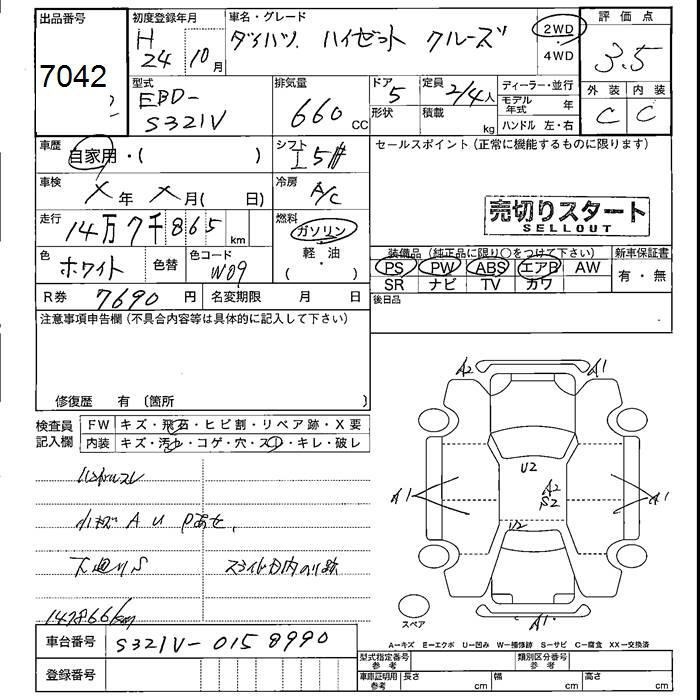 出品番号
7042
初度登録年月
H
24 10月
車名・グレード
ダイハツ ハイゼット クルーズ
2WD
4WD
評価点
3.5
外装 内装
C C
型式
EBD-
S321V
排気量
660 CC
ドア
5
形状
定員
2/4人
積載
kg
ディーラー・並行
モデル年式 年
ハンドル 左・右
車歴
自家用・( )
シフト
I 5#
セールスポイント(正常に機能するものに限ります)
車検
X年 X月( 日)
冷房
A/C
売切りスタート
SELLOUT
走行
14万7千865 km
燃料
ガソリン
軽・油
( )
色
ホワイト
色替
色コード
W09
装備品(純正品に限り○をつけて下さい)
新車保証書
PS PW ABS エアB AW
SR ナビ TV カワ
有・無
R券 7690円
名変期限 月 日
後日品
注意事項申告欄(不具合内容等は具体的に記入して下さい)
修復歴 有 〔箇所 〕
検査員
記入欄
FW キズ・飛石・ヒビ割・リペア跡・X要
内装 キズ・汚レ・コゲ・穴・スレ・キレ・破レ
ハンドルスレ
小キズ A U Pあせ、
下廻りS スライド内のり跡
147866km
A2 A1
U2
A2
S2
A1
A1
U2
A1
スペア
A-キズ E-エクボ U-凹み W-補修跡 S-サビ C-腐食 XX-交換済
車台番号 S321V-0158990
登録番号
型式指定番号
参考
類別区分番号
参考
車庫証明用
参考
長さ cm
幅 cm
高さ cm